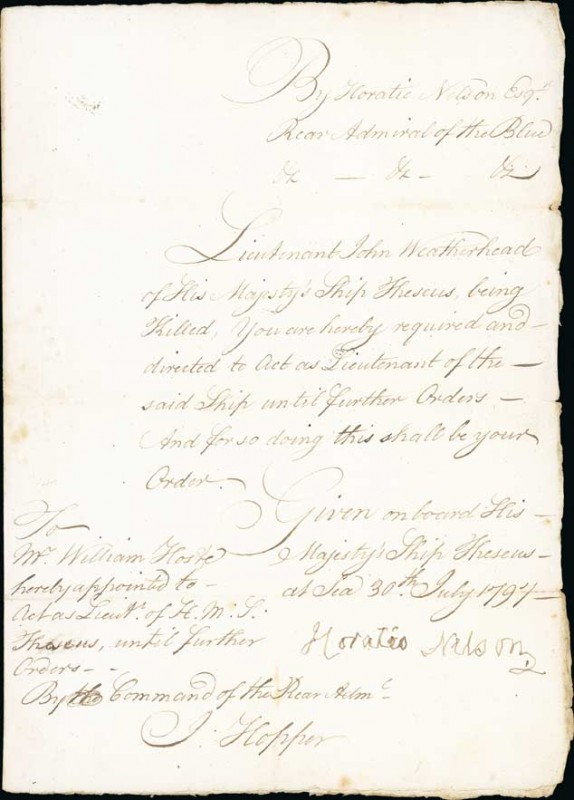 By Horatio Nelson Esqr.
Rear Admiral of the Blue
&c — &c — &c.
Lieutenant John Weatherhead
of His Majesty's Ship Theseus, being
Killed, You are hereby required and
directed to Act as Lieutenant of the
said Ship until further Orders —
And for so doing this shall be your
Order.
Given on board His
Majesty's Ship Theseus
at Sea 30th. July 1797
Horatio Nelson
To
Mr. William Hoste
hereby appointed to
Act as Lieut. of H.M.S.
Theseus, until further
Orders
By the Command of the Rear Adml.
J. Hopper